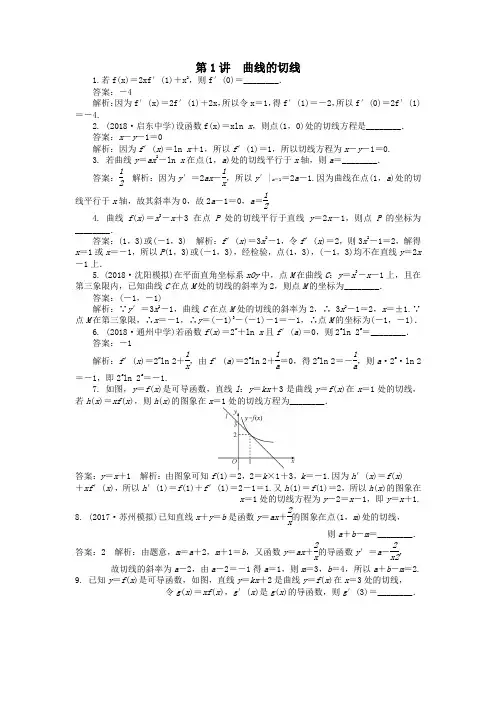 第1讲　曲线的切线
1.若f(x)＝2xf′(1)＋x²，则f′(0)＝________.
答案：－4
解析：因为f′(x)＝2f′(1)＋2x，所以令x＝1，得f′(1)＝－2，所以f′(0)＝2f′(1)
＝－4.
2. (2018·启东中学)设函数f(x)＝xln x，则点(1，0)处的切线方程是________．
答案：x－y－1＝0
解析：因为f′(x)＝ln x＋1，所以f′(1)＝1，所以切线方程为x－y－1＝0.
3. 若曲线y＝ax²－ln x在点(1，a)处的切线平行于x轴，则a＝________．
答案：1/2　解析：因为y′＝2ax－1/x，所以y′|ₓ₌₁＝2a－1.因为曲线在点(1，a)处的切
线平行于x轴，故其斜率为0，故2a－1＝0，a＝1/2.
4. 曲线f(x)＝x³－x＋3在点P处的切线平行于直线y＝2x－1，则点P的坐标为
________．
答案：(1，3)或(－1，3)　解析：f′(x)＝3x²－1，令f′(x)＝2，则3x²－1＝2，解得
x＝1或x＝－1，所以P(1，3)或(－1，3)，经检验，点(1，3)，(－1，3)均不在直线y＝2x
－1上．
5. (2018·沈阳模拟)在平面直角坐标系xOy中，点M在曲线C：y＝x³－x－1上，且在
第三象限内，已知曲线C在点M处的切线的斜率为2，则点M的坐标为________．
答案：(－1，－1)
解析：∵y′＝3x²－1，曲线C在点M处的切线的斜率为2，∴ 3x²－1＝2，x＝±1.∵
点M在第三象限，∴x＝－1，∴y＝(－1)³－(－1)－1＝－1，∴点M的坐标为(－1，－1)．
6. (2018·通州中学)若函数f(x)＝2ˣ＋ln x且f′(a)＝0，则2ᵃln 2ᵃ＝________．
答案：－1
解析：f′(x)＝2ˣln 2＋1/x，由f′(a)＝2ᵃln 2＋1/a＝0，得2ᵃln 2＝－1/a，则a·2ᵃ·ln 2
＝－1，即2ᵃln 2ᵃ＝－1.
7. 如图，y＝f(x)是可导函数，直线l：y＝kx＋3是曲线y＝f(x)在x＝1处的切线，
若h(x)＝xf(x)，则h(x)的图象在x＝1处的切线方程为________．
l
y
3
y=f(x)
2
O 1 x
答案：y＝x＋1　解析：由图象可知f(1)＝2，2＝k×1＋3，k＝－1.因为h′(x)＝f(x)
＋xf′(x)，所以h′(1)＝f(1)＋f′(1)＝2－1＝1.又h(1)＝f(1)＝2，所以h(x)的图象在
x＝1处的切线方程为y－2＝x－1，即y＝x＋1.
8. (2017·苏州模拟)已知直线x＋y＝b是函数y＝ax＋2/x的图象在点(1，m)处的切线，
则a＋b－m＝________．
答案：2　解析：由题意，m＝a＋2，m＋1＝b，又函数y＝ax＋2/x的导函数y′＝a－2/x2，
故切线的斜率为a－2，由a－2＝－1得a＝1，则m＝3，b＝4，所以a＋b－m＝2.
9. 已知y＝f(x)是可导函数，如图，直线y＝kx＋2是曲线y＝f(x)在x＝3处的切线，
令g(x)＝xf(x)，g′(x)是g(x)的导函数，则g′(3)＝________．